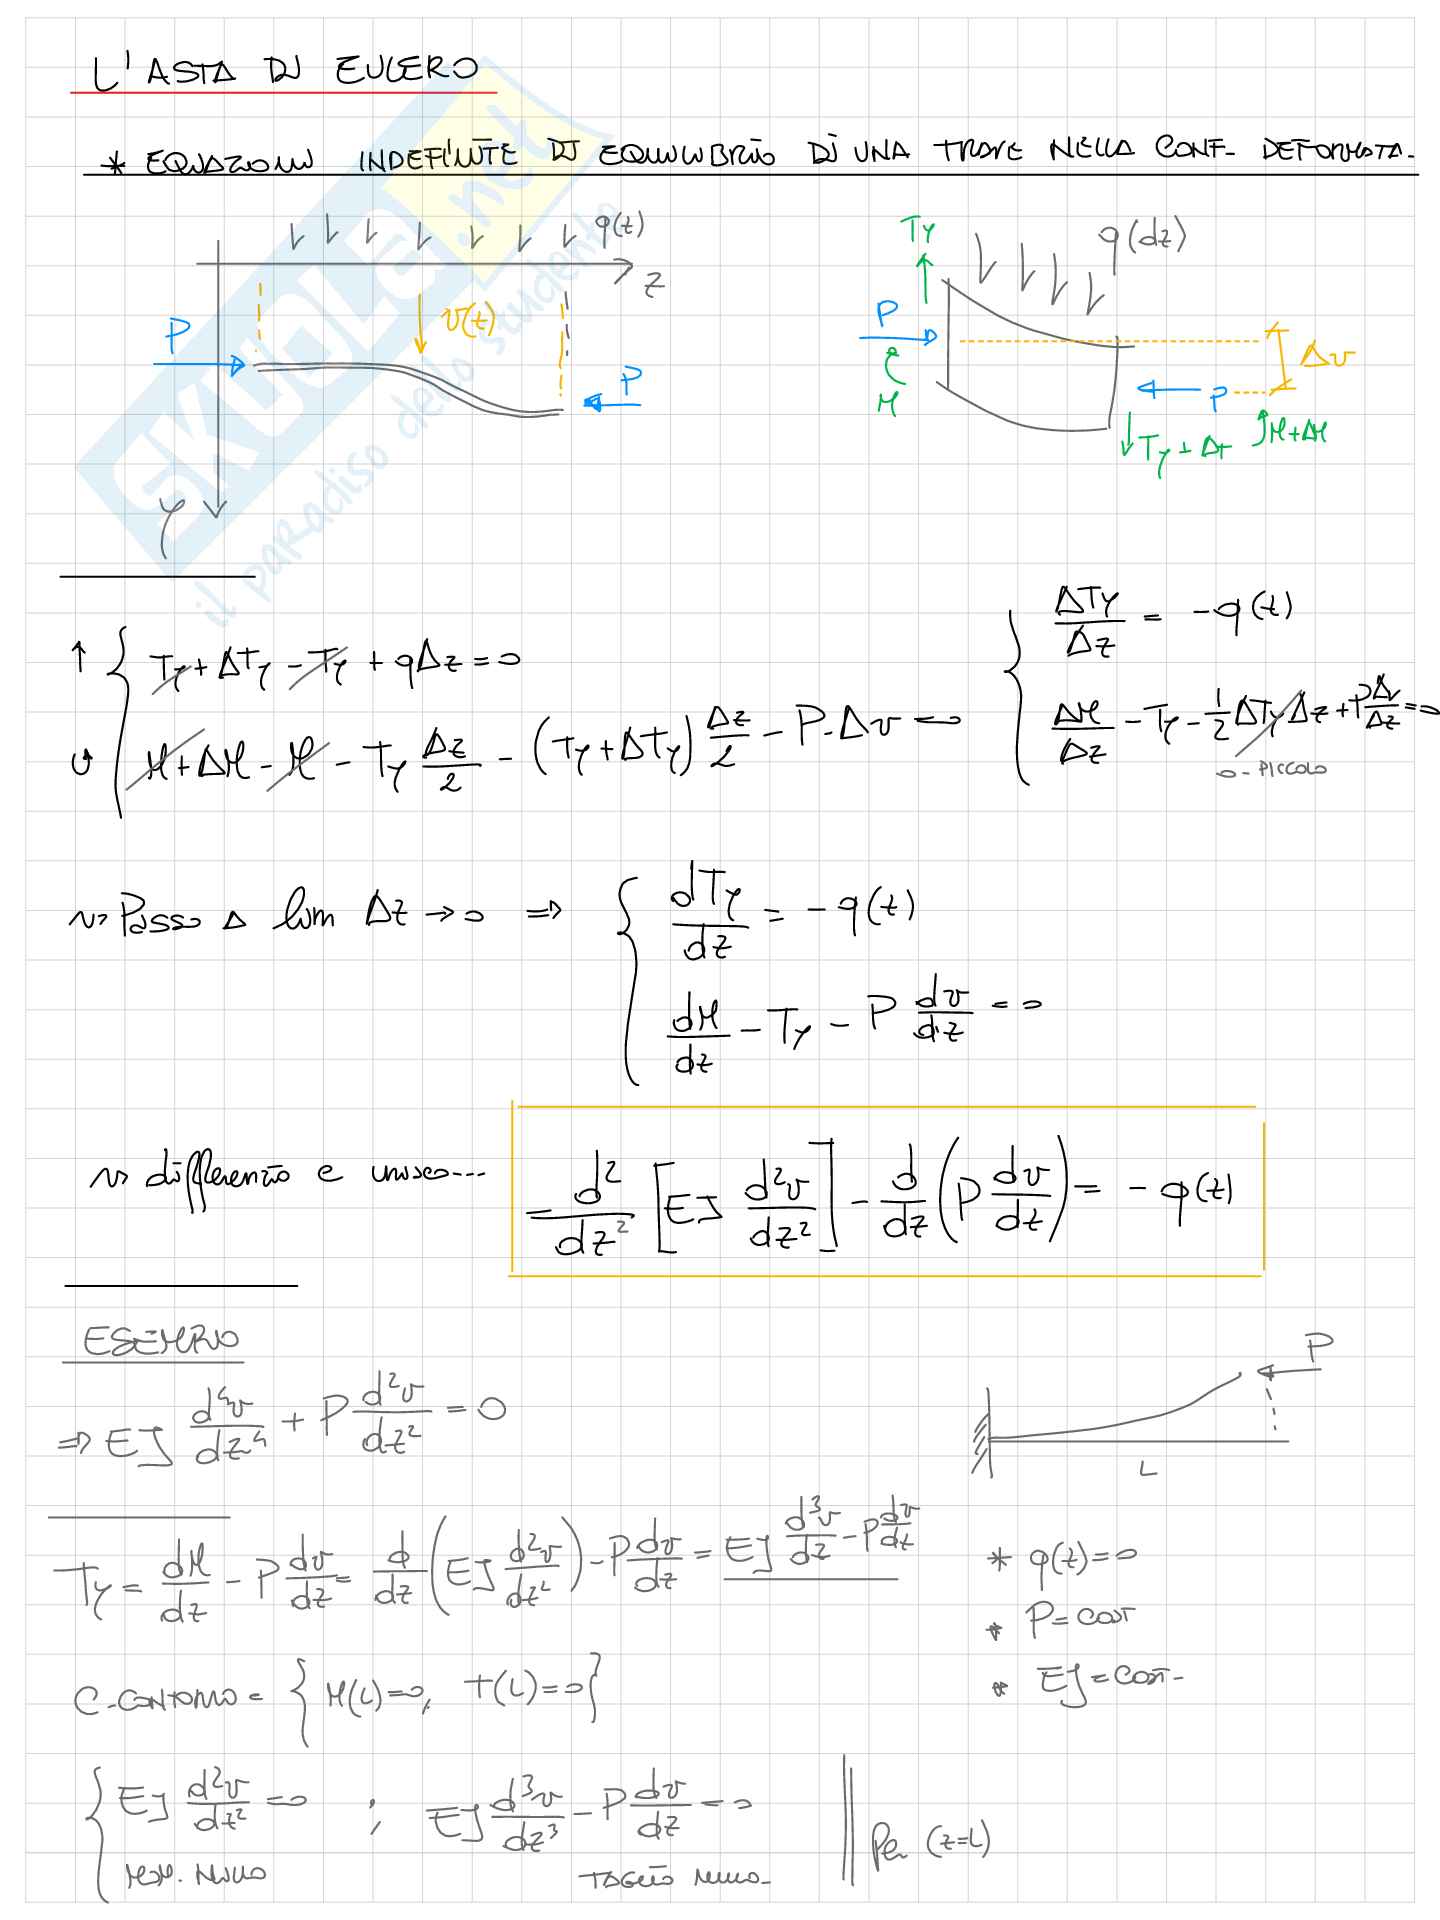 L'ASTA DI EULERO
* EQUAZIONI INDEFINITE DI EQUILIBRIO DI UNA TRAVE NELLA CONF. DEFORMATA.
q(z)
z
v(z)
P
P
Y
Ty
q(dz)
P
M
Δv
P
Ty + Δt
M+ΔM
SKUOLA.net
il paradiso dello studente
↑ { Ty + ΔTy - Ty + qΔz = 0
↺ { M + ΔM - M - Ty Δz/2 - (Ty + ΔTy) Δz/2 - P·Δv = 0
{ ΔTy/Δz = - q(z)
{ ΔM/Δz - Ty - 1/2 ΔTy Δz + P Δv/Δz = 0
o-PICCOLO
~> Passo a lim Δz → 0 ⇒ { dTy/dz = - q(z)
{ dM/dz - Ty - P dv/dz = 0
~> differenzio e unisco... = d²/dz² [EJ d²v/dz²] - d/dz (P dv/dz) = - q(z)
ESEMPIO
⇒ EJ d⁴v/dz⁴ + P d²v/dz² = 0
P
L
Ty = dM/dz - P dv/dz = d/dz (EJ d²v/dz²) - P dv/dz = EJ d³v/dz - P dv/dz
* q(z) = 0
* P = cost
* EJ = cost.
C. CONTORNO = { M(L) = 0, T(L) = 0 }
{ EJ d²v/dz² = 0 ; EJ d³v/dz³ - P dv/dz = 0 || Per (z=L)
MOM. NULLO TAGLIO NULLO.